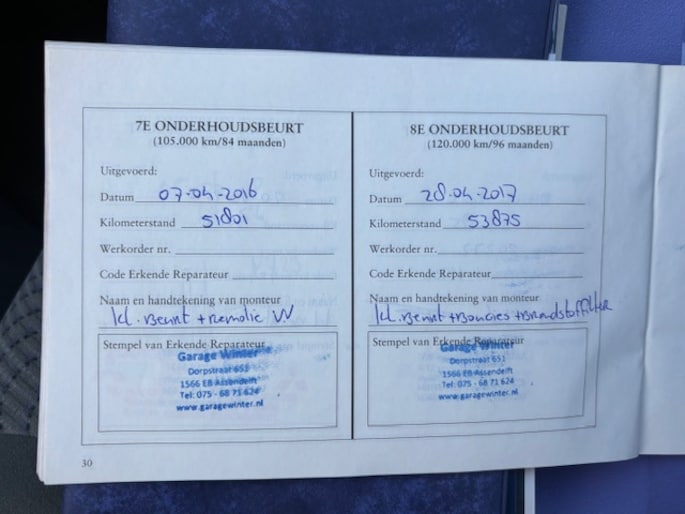 7E ONDERHOUDSBEURT
(105.000 km/84 maanden)
Uitgevoerd:
Datum 07-04-2016
Kilometerstand 51801
Werkorder nr.
Code Erkende Reparateur
Naam en handtekening van monteur
kl. Beurt + remolie VV
Stempel van Erkende Reparateur
Garage Winter
Dorpstraat 651
1566 EB Assendelft
Tel: 075 - 68 71 624
www.garagewinter.nl
8E ONDERHOUDSBEURT
(120.000 km/96 maanden)
Uitgevoerd:
Datum 28-04-2017
Kilometerstand 53875
Werkorder nr.
Code Erkende Reparateur
Naam en handtekening van monteur
kl. Beurt + Bougies + Brandstoffilter
Stempel van Erkende Reparateur
Garage Winter
Dorpstraat 651
1566 EB Assendelft
Tel: 075 - 68 71 624
www.garagewinter.nl
30